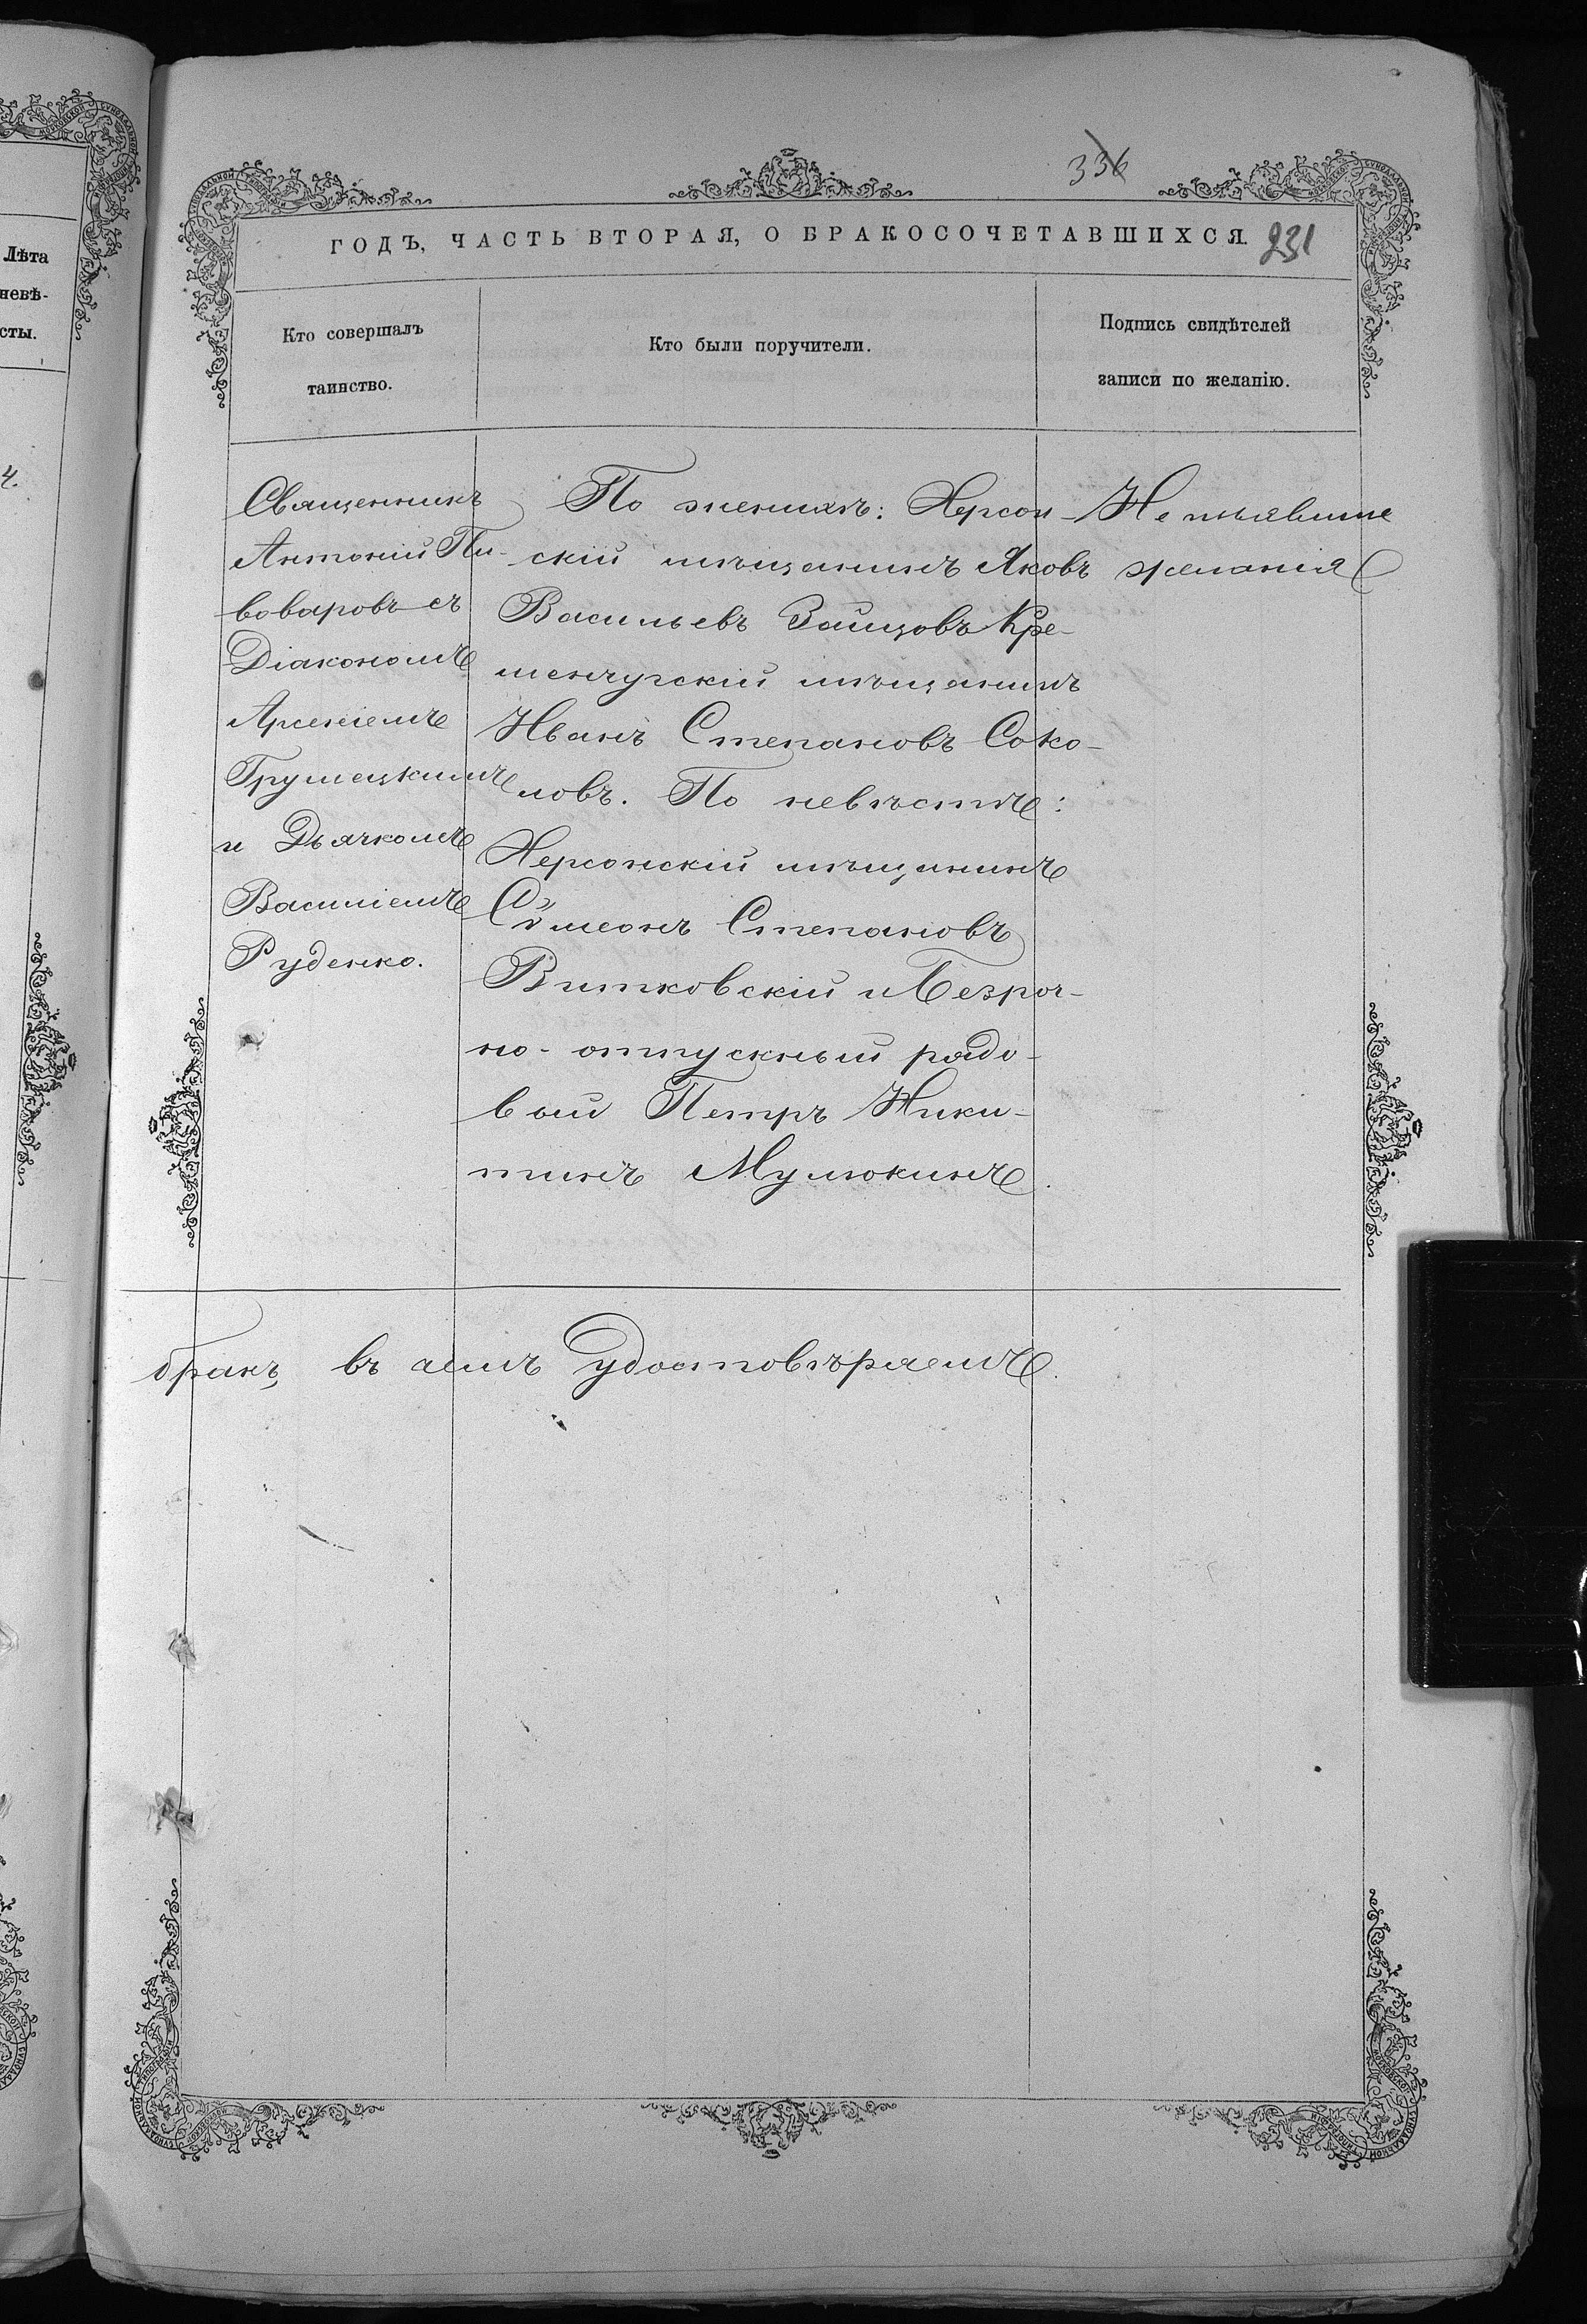 Лѣта
невѣ-
сты.
4.
336
ГОДЪ, ЧАСТЬ ВТОРАЯ, О БРАКОСОЧЕТАВШИХСЯ.
231
Кто совершалъ
таинство.
Кто были поручители.
Подпись свидѣтелей
записи по желанію.
Священникъ
Антоній Пи-
воваровъ съ
Діакономъ
Арсеніемъ
Грушецкимъ
и Дьячкомъ
Василіемъ
Руденко.
По женихѣ: Херсон-
скій мѣщанинъ Яковъ
Васильевъ Зайцовъ Кре-
менчугскій мѣщанинъ
Иванъ Степановъ Соко-
ловъ. По невѣстѣ:
Херсонскій мѣщанинъ
Сѵмеонъ Степановъ
Витковскій и Безроч-
но-отпускный рядо-
вый Петръ Ники-
тинъ Мулюкинъ.
Неизъявили
желанія
бракъ, въ чемъ удостовѣряемъ.